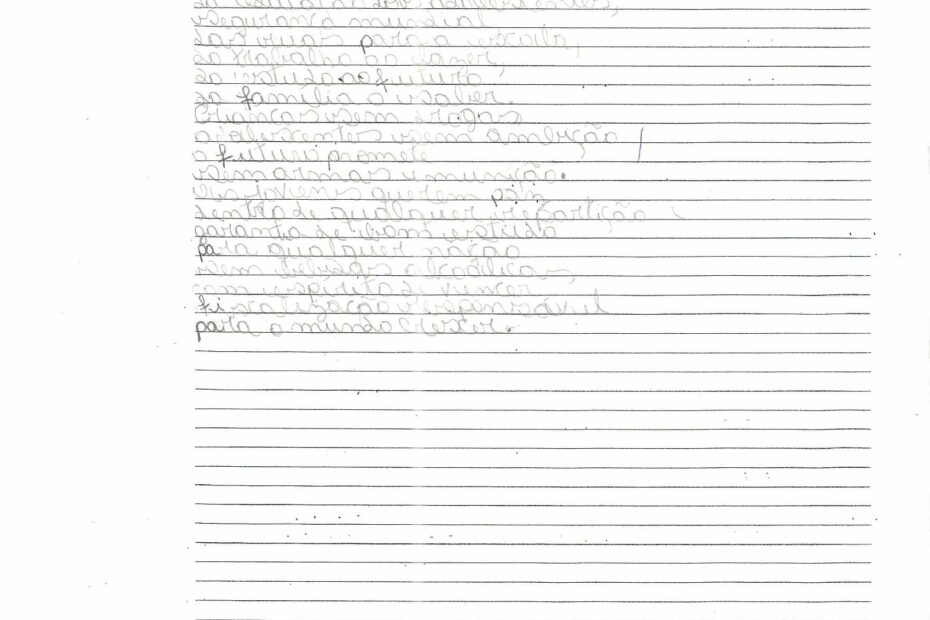 segurança mundial
das ruas para a escola,
do trabalho ao lazer,
do estudo ao futuro
da família o saber.
Crianças sem drogas
adolescentes sem ambição
o futuro promete
sem armas e munição.
Os jovens querem paz
dentro de qualquer repartição
garantia de bom estudo
para qualquer nação
sem bebidas alcoólicas,
com espírito de vencer
fiscalização responsável
para o mundo crescer.